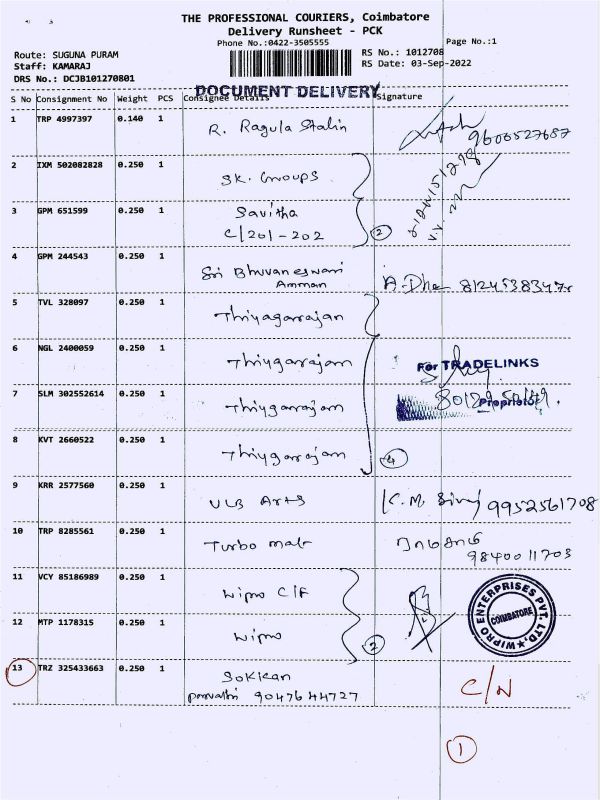 THE PROFESSIONAL COURIERS, Coimbatore
Delivery Runsheet - PCK
Phone No.:0422-3505555
Page No.:1
Route: SUGUNA PURAM
RS No.: 1012708
Staff: KAMARAJ
RS Date: 03-Sep-2022
DRS No.: DCJB101270801
DOCUMENT DELIVERY
S No Consignment No Weight PCS Consignee Details Signature
1 TRP 4997397 0.140 1 R. Ragula Stalin 9600527687
2 IXM 502082828 0.250 1 SK. Groups
3 GPM 651599 0.250 1 Savitha
C/201-202 2
4 GPM 244543 0.250 1 Sri Bhuvaneswari
Amman A.Dha
5 TVL 328097 0.250 1 Thiyagarajan
6 NGL 2400059 0.250 1 Thiygarajam
For TRADELINKS
7 SLM 302552614 0.250 1 Thiygarajam
Proprietor
8 KVT 2660522 0.250 1 Thiygarajam 4
9 KRR 2577560 0.250 1 VLB Arts K.M. Siva 9952561708
10 TRP 8285561 0.250 1 Turbo mat
9840011703
11 VCY 85186989 0.250 1 Wipro C/F
WIPRO ENTERPRISES PVT. LTD.,
COIMBATORE
12 MTP 1178315 0.250 1 Wipro 2
13 TRZ 325433663 0.250 1 Sokkan
parvathi 9047644727
C/N
1